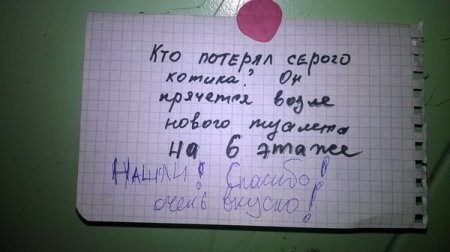 Кто потерял серого
котика? Он
прячется возле
нового туалета
на 6 этаже
Нашли! Спасибо!
очень вкусно!